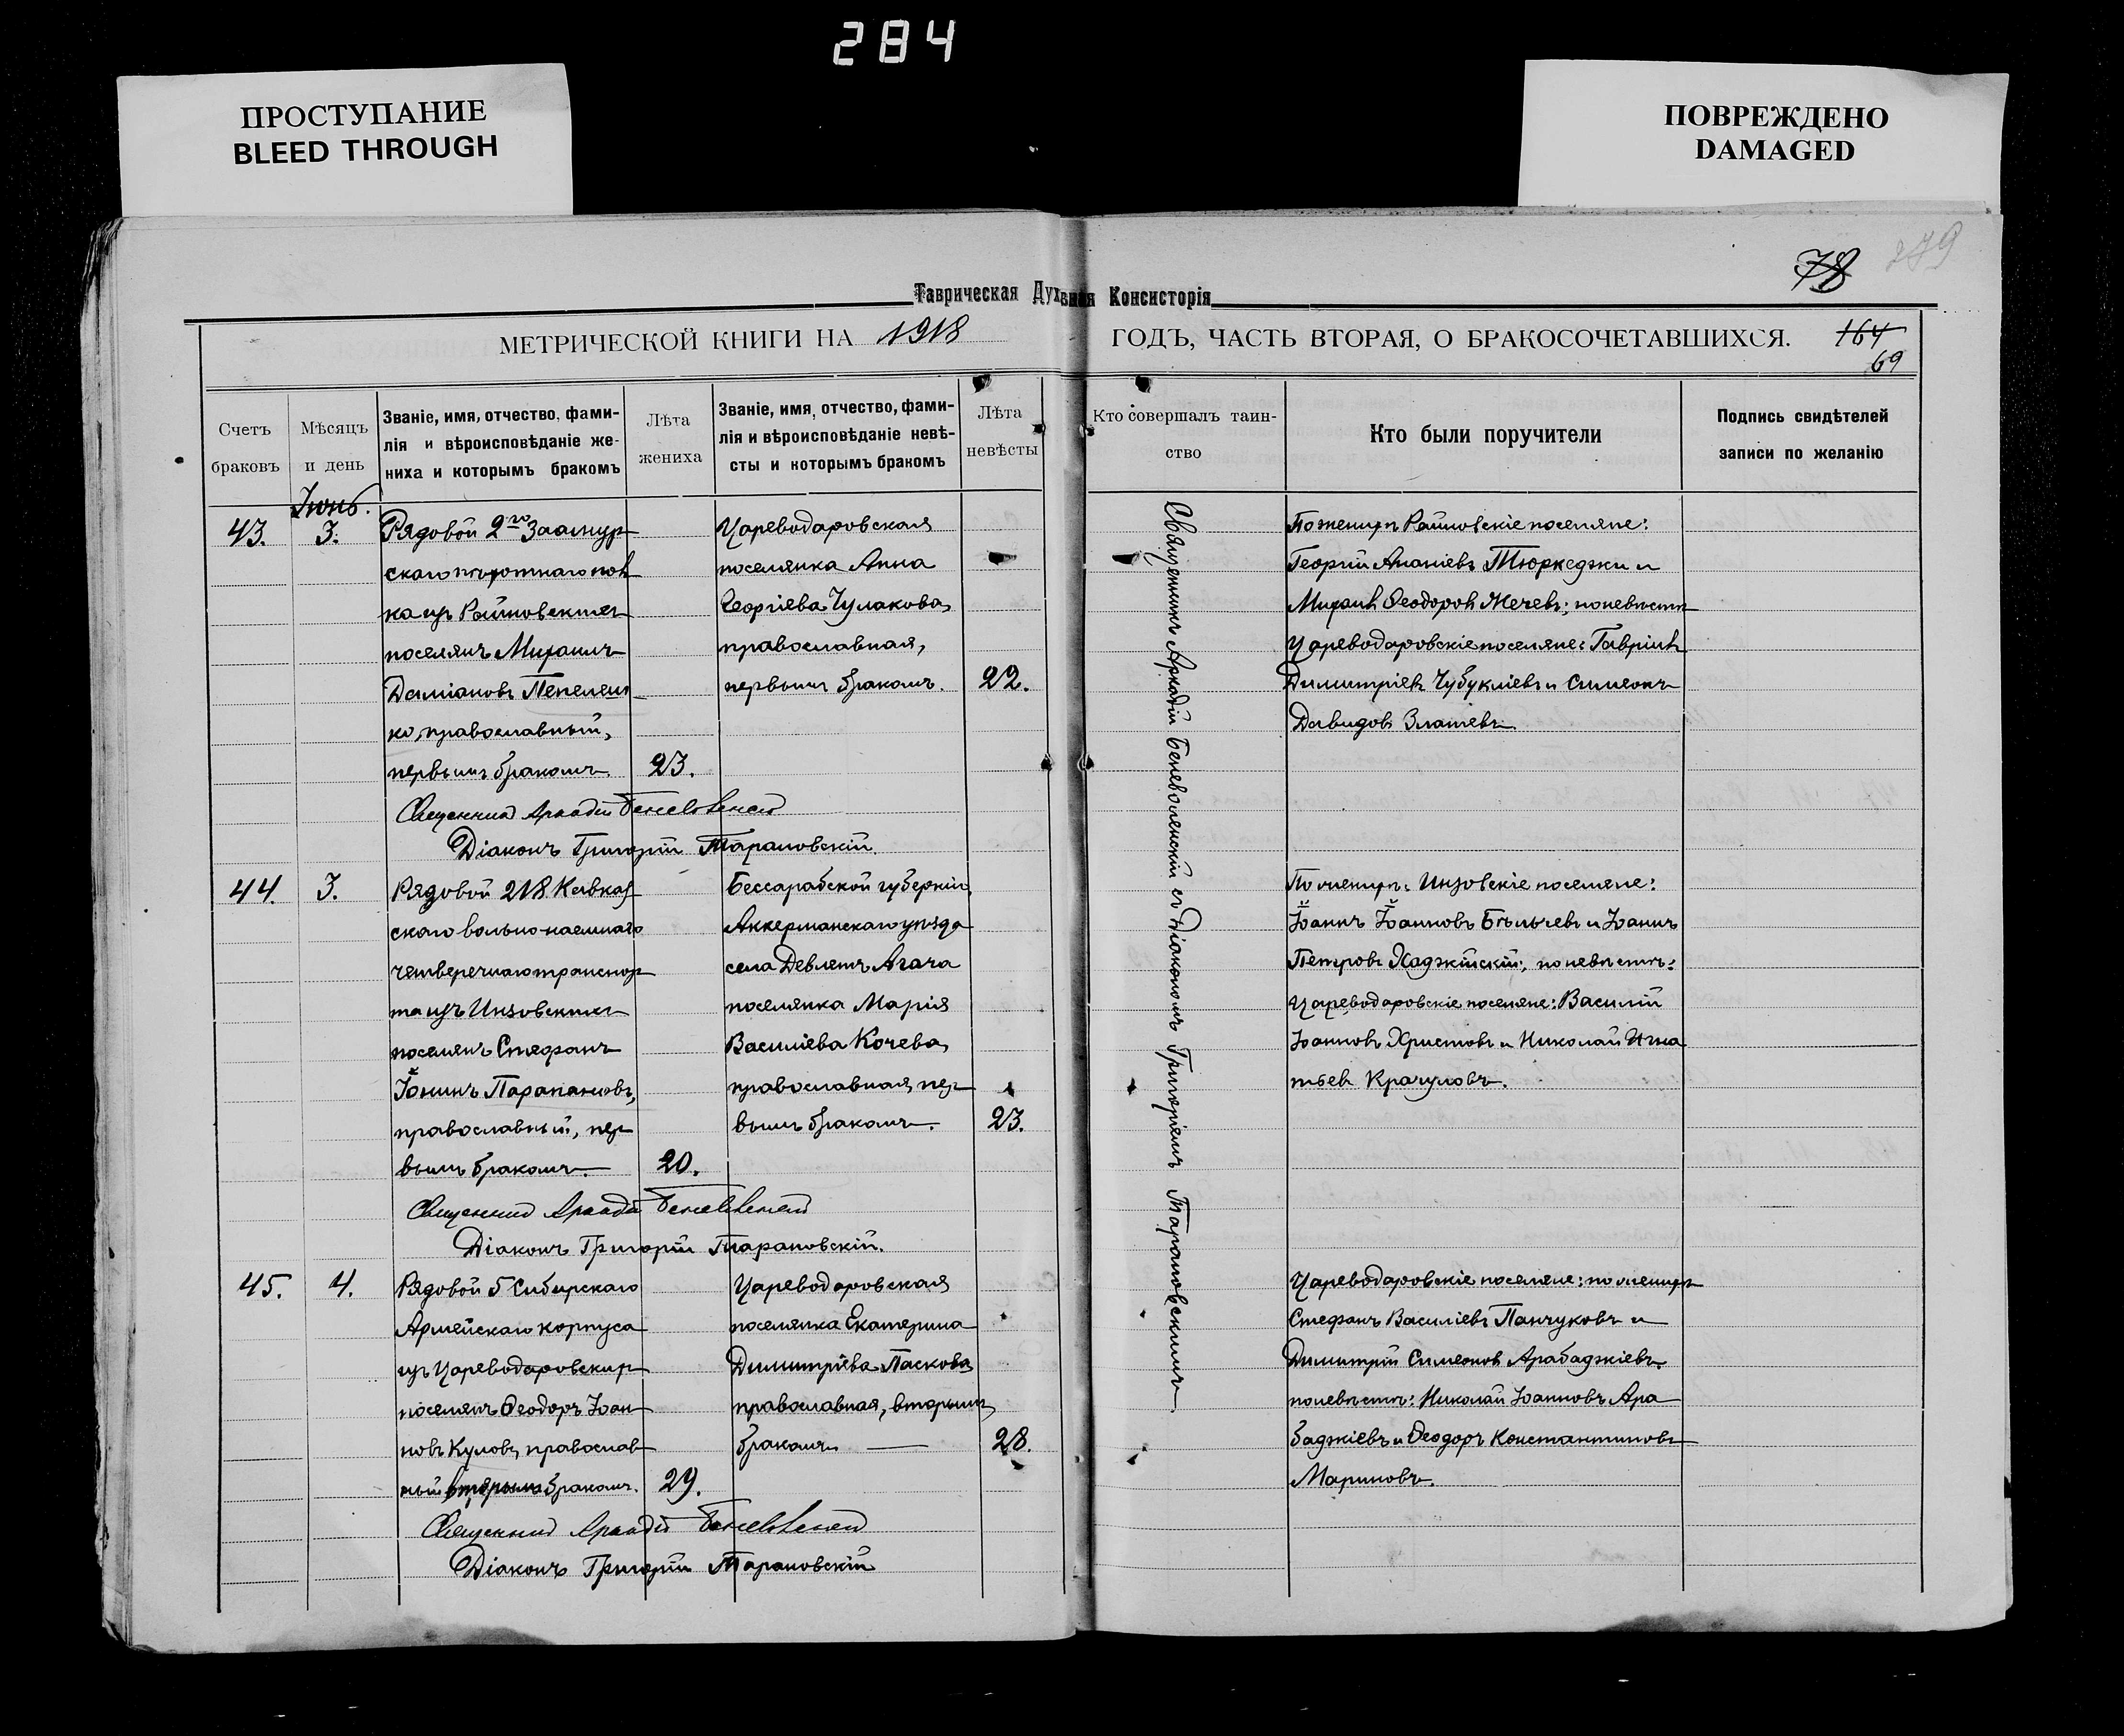 284
ПРОСТУПАНИЕ
BLEED THROUGH
ПОВРЕЖДЕНО
DAMAGED
78 279
Таврическая Духовная Консисторія
МЕТРИЧЕСКОЙ КНИГИ НА 1918 ГОДЪ, ЧАСТЬ ВТОРАЯ, О БРАКОСОЧЕТАВШИХСЯ. 164
69
Счетъ
браковъ
Мѣсяцъ
и день
Званіе, имя, отчество, фами-
лія и вѣроисповѣданіе же-
ниха и которымъ бракомъ
Лѣта
жениха
Званіе, имя, отчество, фами-
лія и вѣроисповѣданіе невѣ-
сты и которымъ бракомъ
Лѣта
невѣсты
Кто совершалъ таин-
ство
Кто были поручители
Подпись свидѣтелей
записи по желанію
Іюнь.
43.
3.
Рядовой 2го Заамур
скаго пѣхотнаго пол
ка изъ Райновскихъ
поселянъ Михаилъ
Даміановъ Пепелен
ко, православный,
первымъ бракомъ
23.
Цареводаровская
поселянка Анна
Георгіева Чулакова,
православная,
первымъ бракомъ.
22.
Священникъ Аркадій Беневоленскій съ Діакономъ Григоріемъ Тарановскимъ.
По женихѣ Райновскіе поселяне:
Георгій Ананіевъ Тюркеджи и
Михаилъ Ѳеодоровъ Жечевъ; по невѣстѣ
Цареводаровскіе поселяне: Гавріилъ
Димитріевъ Чубукліевъ и Симеонъ
Давидовъ Златевъ
Священникъ Аркадій Беневоленскій
Діаконъ Григорій Тарановскій.
44.
3.
Рядовой 218 Кавказ
скаго вольно-наемнаго
четверечнаго транспор
та изъ Инзовскихъ
поселянъ Стефанъ
Іоанинъ Парапановъ,
православный, пер
вымъ бракомъ.
20.
Бессарабской губерніи,
Аккерманскаго уѣзда
села Девлетъ Агача
поселянка Марія
Василіева Кочева,
православная, пер
вымъ бракомъ.
23.
По женихѣ: Инзовскіе поселяне:
Іоаннъ Іоанновъ Бѣльчевъ и Іоаннъ
Петровъ Хаджійскій; по невѣстѣ:
Цареводаровскіе поселяне: Василій
Іоанновъ Христовъ и Николай Игна
тьевъ Крачуловъ.
Священникъ Аркадій Беневоленскій
Діаконъ Григорій Тарановскій.
45.
4.
Рядовой 5 Сибирскаго
Армейскаго корпуса
изъ Цареводаровскихъ
поселянъ Ѳеодоръ Іоан
новъ Куловъ, православ
ный вторымъ бракомъ.
29.
Цареводаровская
поселянка Екатерина
Димитріева Паскова,
православная, вторымъ
бракомъ
28.
Цареводаровскіе поселяне: по женихѣ
Стефанъ Василіевъ Панчуковъ и
Димитрій Симеоновъ Арабаджіевъ,
по невѣстѣ: Николай Іоанновъ Ара
баджіевъ и Ѳеодоръ Константиновъ
Мариновъ.
Священникъ Аркадій Беневоленскій
Діаконъ Григорій Тарановскій